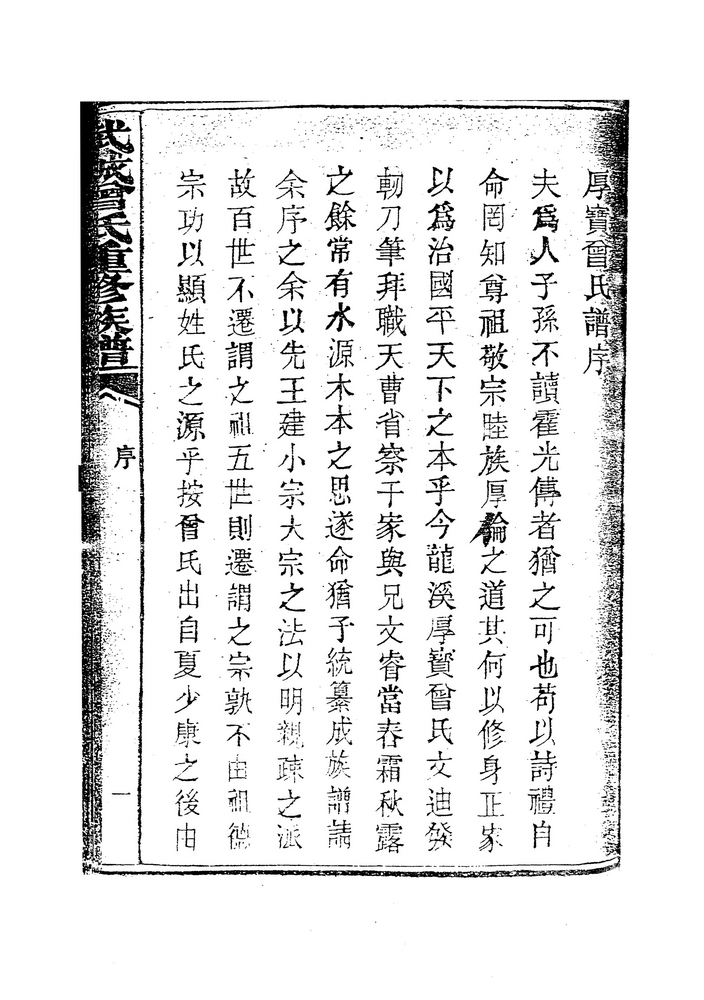 厚寶曾氏譜序
夫爲人子孫不讀霍光傳者猶之可也苟以詩禮自
命罔知尊祖敬宗睦族厚倫之道其何以修身正家
以爲治國平天下之本乎今龍溪厚寶曾氏文迪發
軔刀筆拜職天曹省察于家與兄文睿當春霜秋露
之餘常有水源木本之思遂命猶子統纂成族譜請
余序之余以先王建小宗大宗之法以明親疎之派
故百世不遷謂之祖五世則遷謂之宗孰不由祖德
宗功以顯姓氏之源乎按曾氏出自夏少康之後由
武城曾氏重修族譜
序
一